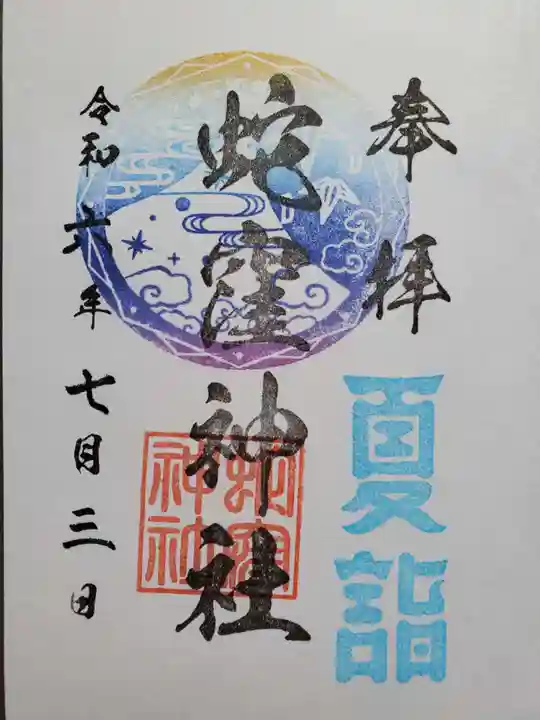 奉拝
夏詣
蛇窪神社
蛇窪神社
令和六年七月三日